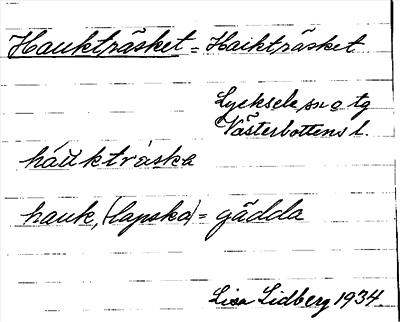 Haukträsket = Haikträsket.
Lycksele sn o tg
Västerbottens l.
háuktràska
hauk, (lapska) = gädda
Lisa Lidberg 1934.